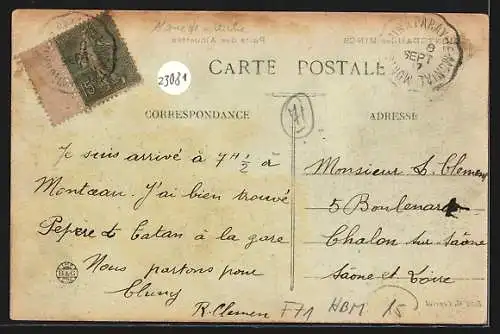 23081
CARTE POSTALE
CORRESPONDANCE
ADRESSE
8
SEPT
71
Je suis arrivé à 7H ½ à
Montceau. J'ai bien trouvé
Pépère & Tatan à la gare
Nous partons pour
Cluny
R. Clemen
Monsieur L. Clemen
5 Boulenard
Chalon sur Saône
Saône et Loire
B&G
F71
HBM
15